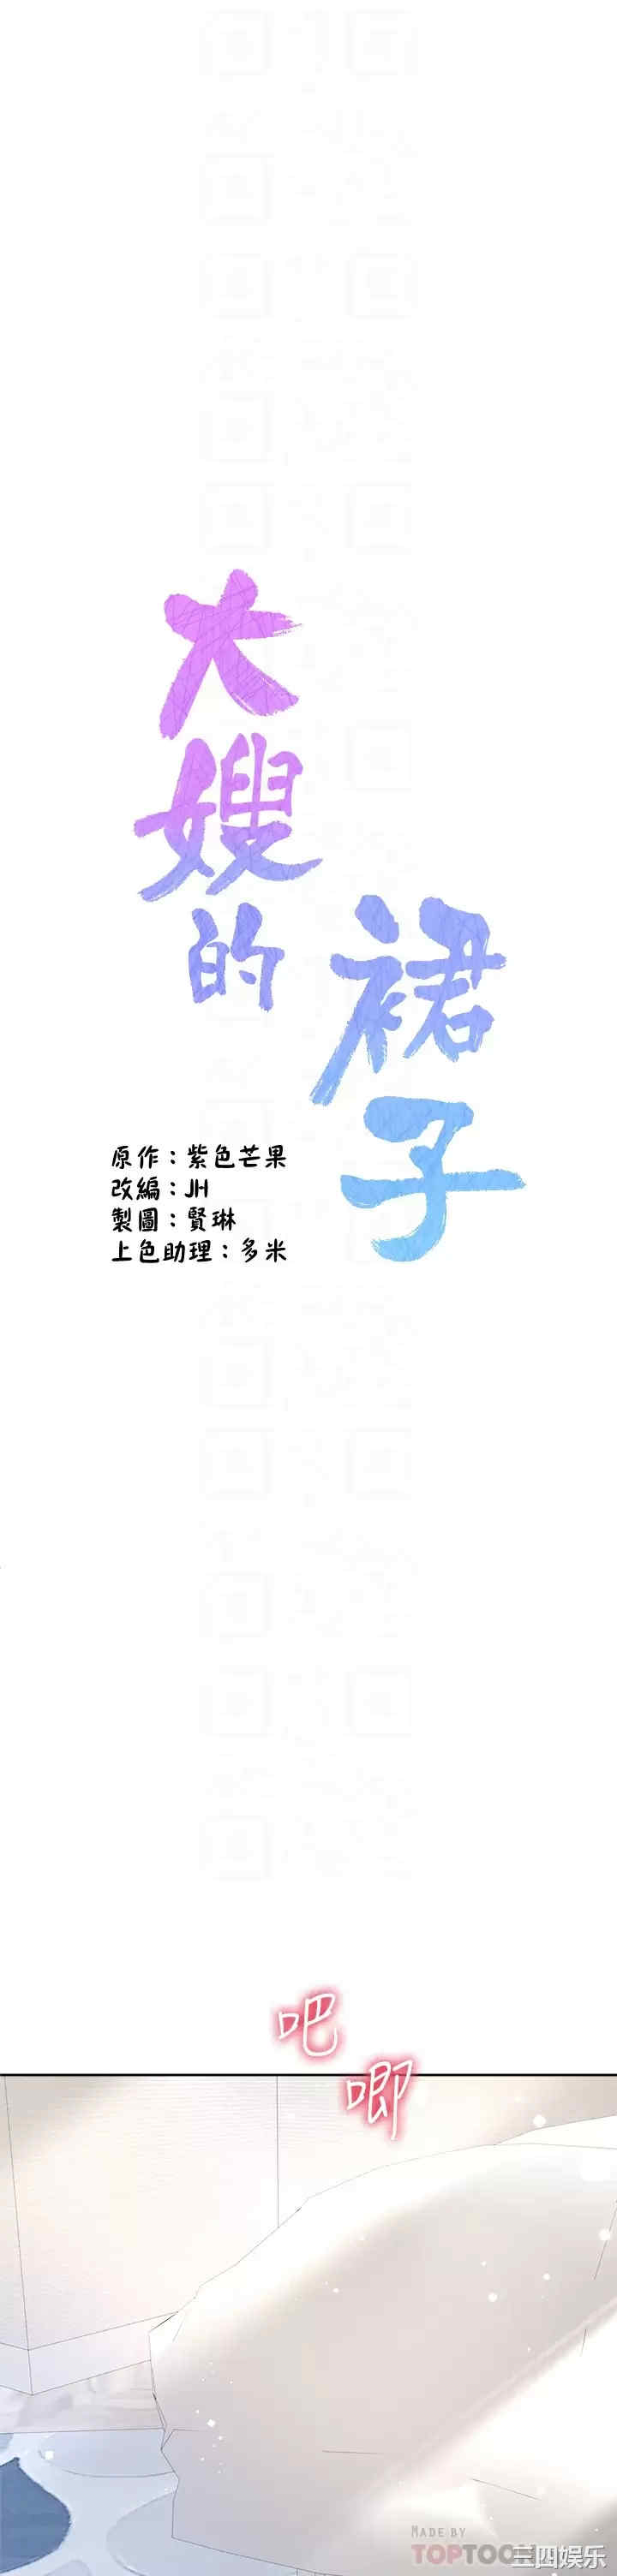 大嫂的
裙子
原作：紫色芒果
改編：JH
製圖：賢琳
上色助理：多米
吧
唧
MADE BY
TOPTOON
三四娱乐